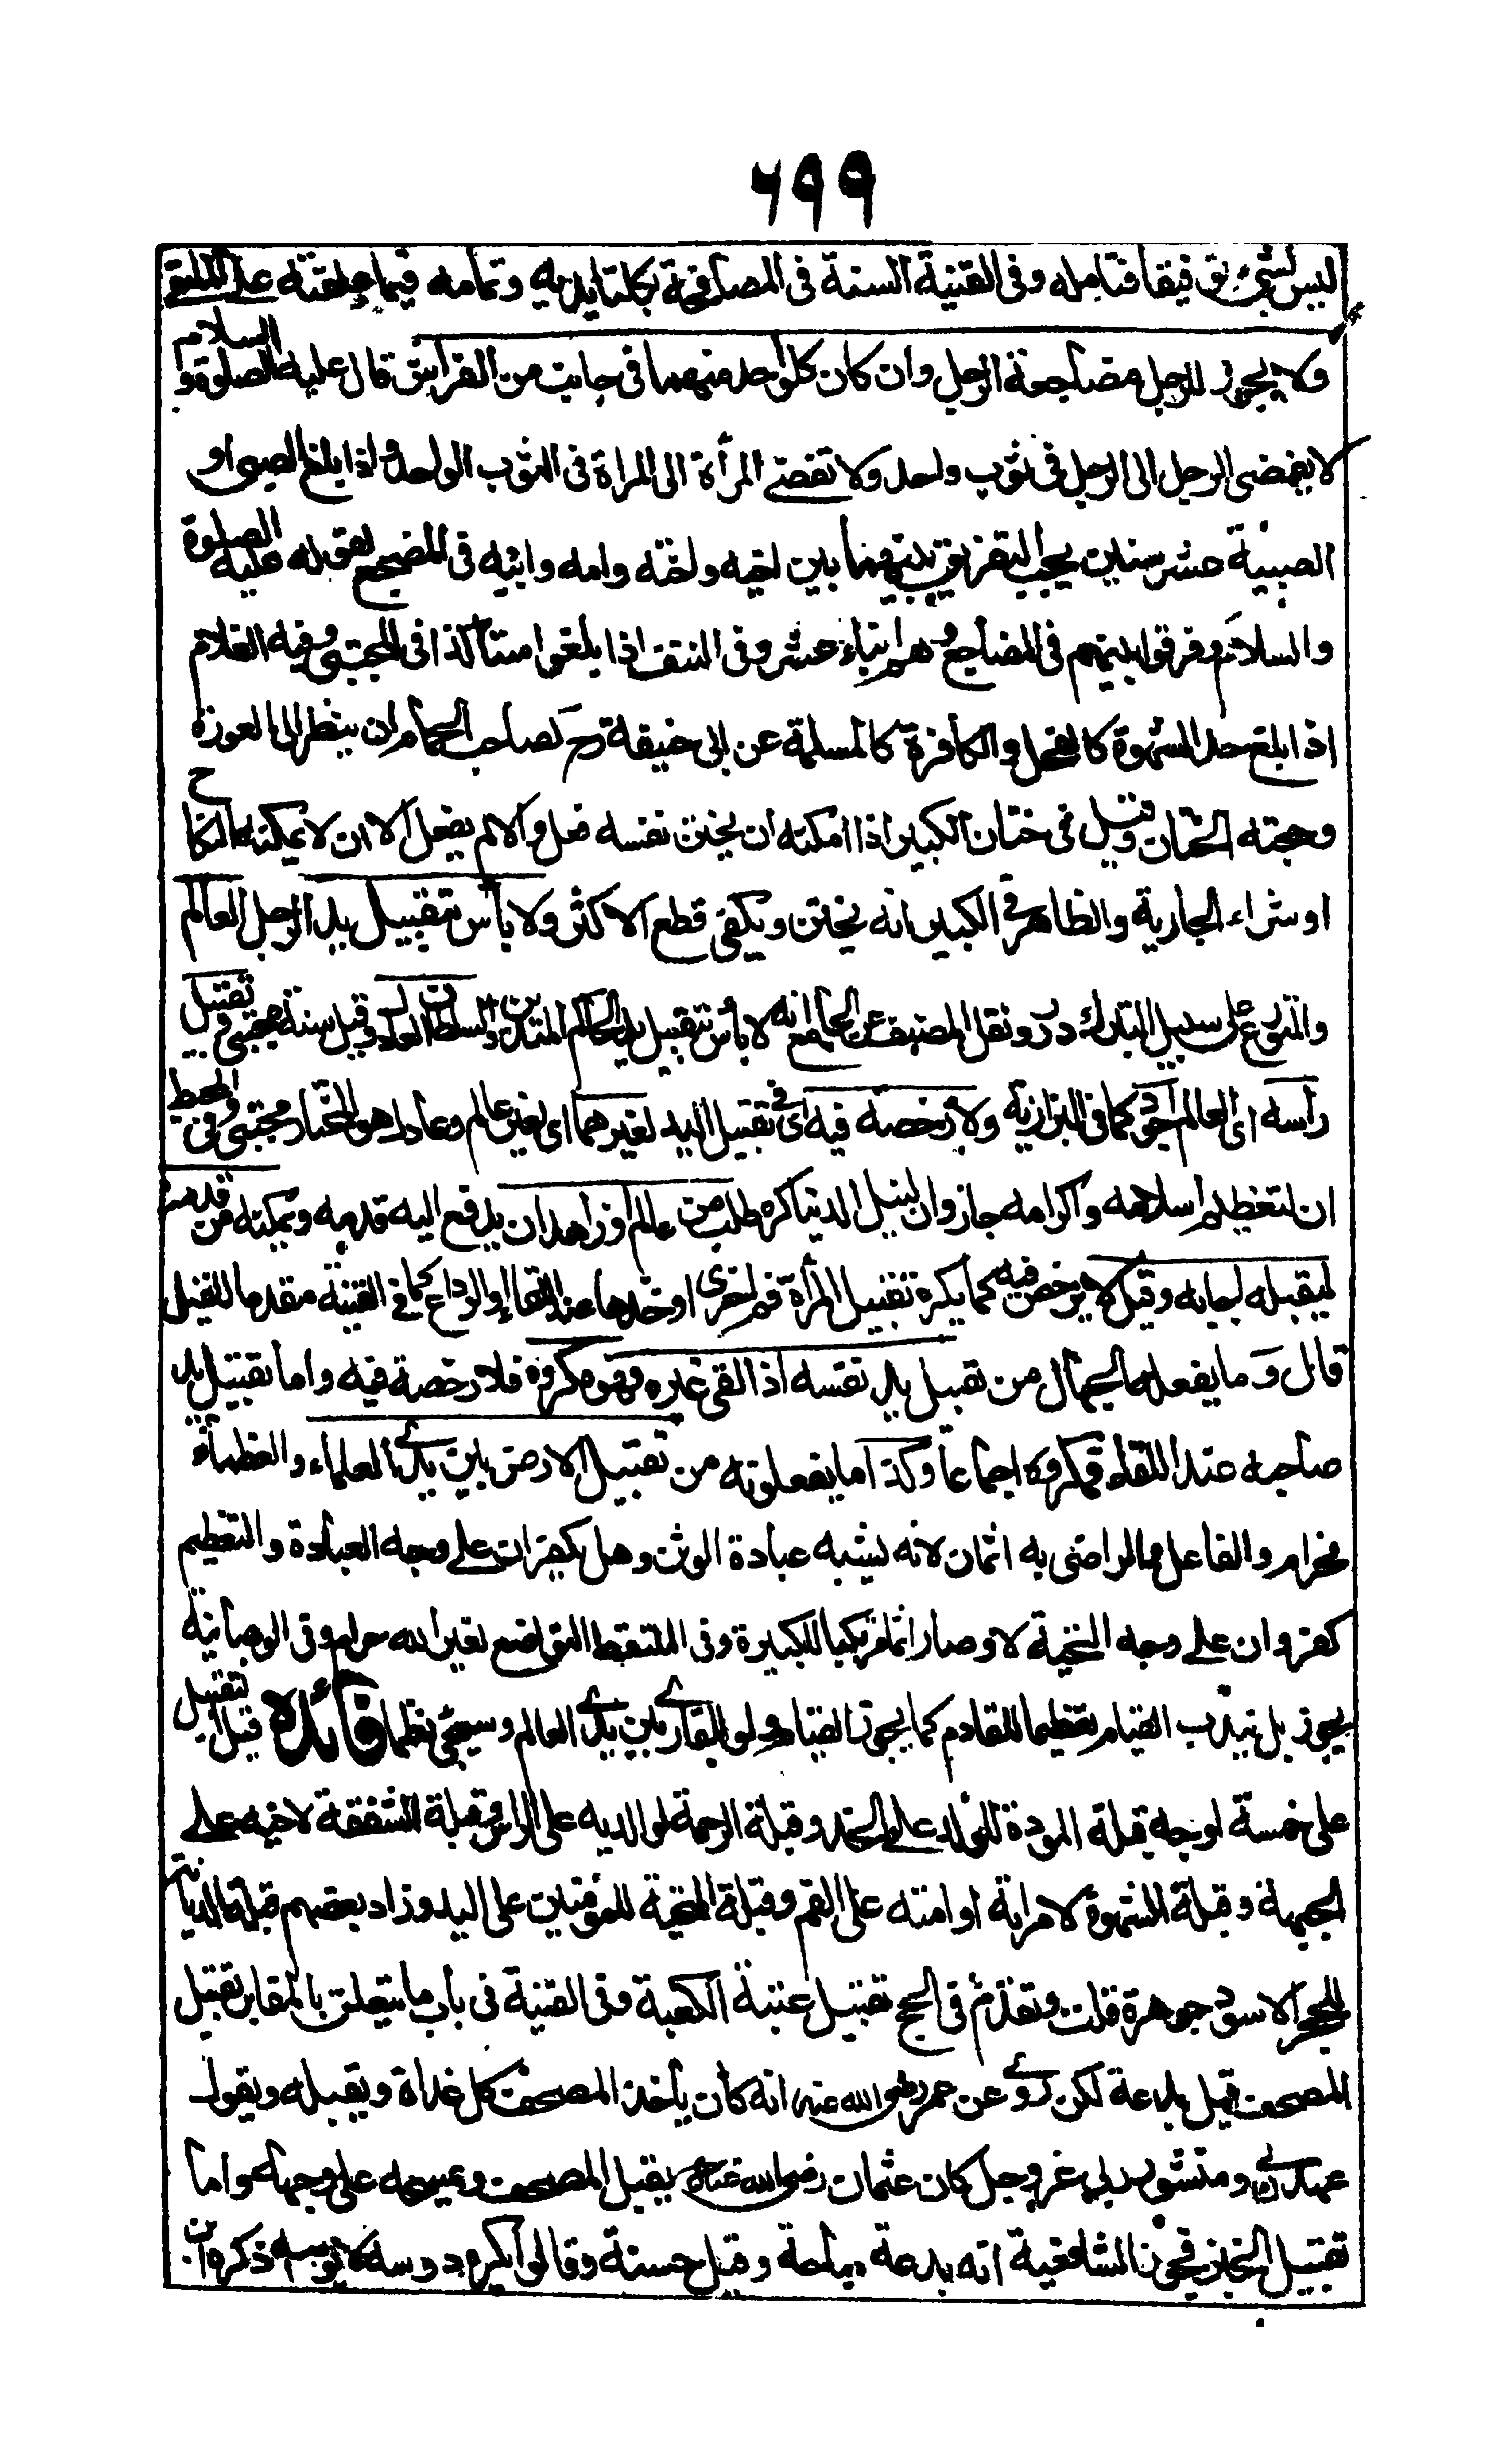 ٦٩٩
ليس لشئ توفيقا فتامله وفى القنية السنة فى المصافحة بكلتا يديه وتمامه فيما علقته على الملتقى
ولا يجوز للرجل مضاجعة الرجل وان كان كل واحد منهما فى جانب من الفراش قال عليه الصلوة والسلام
لا يفضى الرجل الى الرجل فى ثوب واحد ولا تفضى المرأة الى المراة فى الثوب الواحد واذا بلغ الصبى او
الصبية عشر سنين يجب التفريق بينهما بين اخيه واخته وامه وابيه فى المضجع لقوله عليه الصلوة
والسلام وفرقوا بينهم فى المضاجع وهم ابناء عشر وفى النتف اذا بلغوا ستا كذا فى المجتبى وفيه الغلام
اذا بلغ حد الشهوة كالفحل والكافرة كالمسلمة عن ابى حنيفة رح لصاحب الحمام ان ينظر الى العورة
وحجته الختان وقيل فى ختان الكبير اذا امكنه ان يختن نفسه فعل والا لم يفعل الا ان لا يمكنه النكاح
او شراء الجارية والظاهر فى الكبير انه يختن ويكفى قطع الاكثر ولا بأس بتقبيل يد الرجل العالم
والمتورع على سبيل التبرك درر ونقل المصنف عن الجامع انه لا بأس بتقبيل يد الحاكم المتدين والسلطان العادل وقيل سنة مجتبى وتقبيل
رأسه اى العالم اجود كما فى البزازية ولا رخصة فيه اى فى تقبيل اليد لغيرهما اى لغير عالم وعادل هو المختار مجتبى وفى المحيط
ان لتعظيم اسلامه واكرامه جاز وان لنيل الدنيا كره طلب من عالم او زاهد ان يدفع اليه قدمه ويمكنه من قدمه
ليقبله اجابه وقيل لا يرخص فيه كما يكره تقبيل المرأة فم اخرى او خدها عند اللقاء او الوداع كما فى القنية مقدما للقيل
قال وما يفعله الجهال من تقبيل يد نفسه اذا لقى غيره فهو مكروه فلا رخصة فيه واما تقبيل يد
صاحبه عند اللقاء فمكروه اجماعا وكذا ما يفعلونه من تقبيل الارض بين يدى العلماء والعظماء
فحرام والفاعل والراضى به اثمان لانه يشبه عبادة الوثن وهل يكفر ان على وجه العبادة والتعظيم
كفر وان على وجه التحية لا وصار اثما مرتكبا للكبيرة وفى الملتقط التواضع لغير الله حرام وفى الوهبانية
يجوز بل يندب القيام تعظيما للقادم كما يجوز القيام ولو للقارئ بين يدى العالم وسيجئ نظما فائدة قيل التقبيل
على خمسة اوجه قبلة المودة للولد على الخد وقبلة الرحمة لوالديه على الراس وقبلة الشفقة لاخيه على
الجبهة وقبلة الشهوة لامراته او امته على الفم وقبلة التحية للمؤمنين على اليد وزاد بعضهم قبلة الديانة
للحجر الاسود جوهرة قلت وتقدم فى الحج تقبيل عتبة الكعبة وفى القنية فى باب ما يتعلق بالمقابر تقبيل
المصحف قيل بدعة لكن روى عن عمر رضى الله عنه انه كان يأخذ المصحف كل غداة ويقبله ويقول
عهد ربى ومنشور ربى عز وجل كان عثمان رضى الله عنه يقبل المصحف ويمسحه على وجهه واما
تقبيل الخبز فجوز الشافعية انه بدعة مباحة وقيل حسنة وقالوا يكره دوسه لا بوسه ذكره ابن